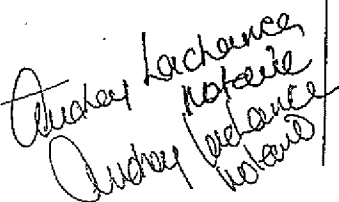 Audrey Lachance,
notaire
Audrey Lachance
notaire